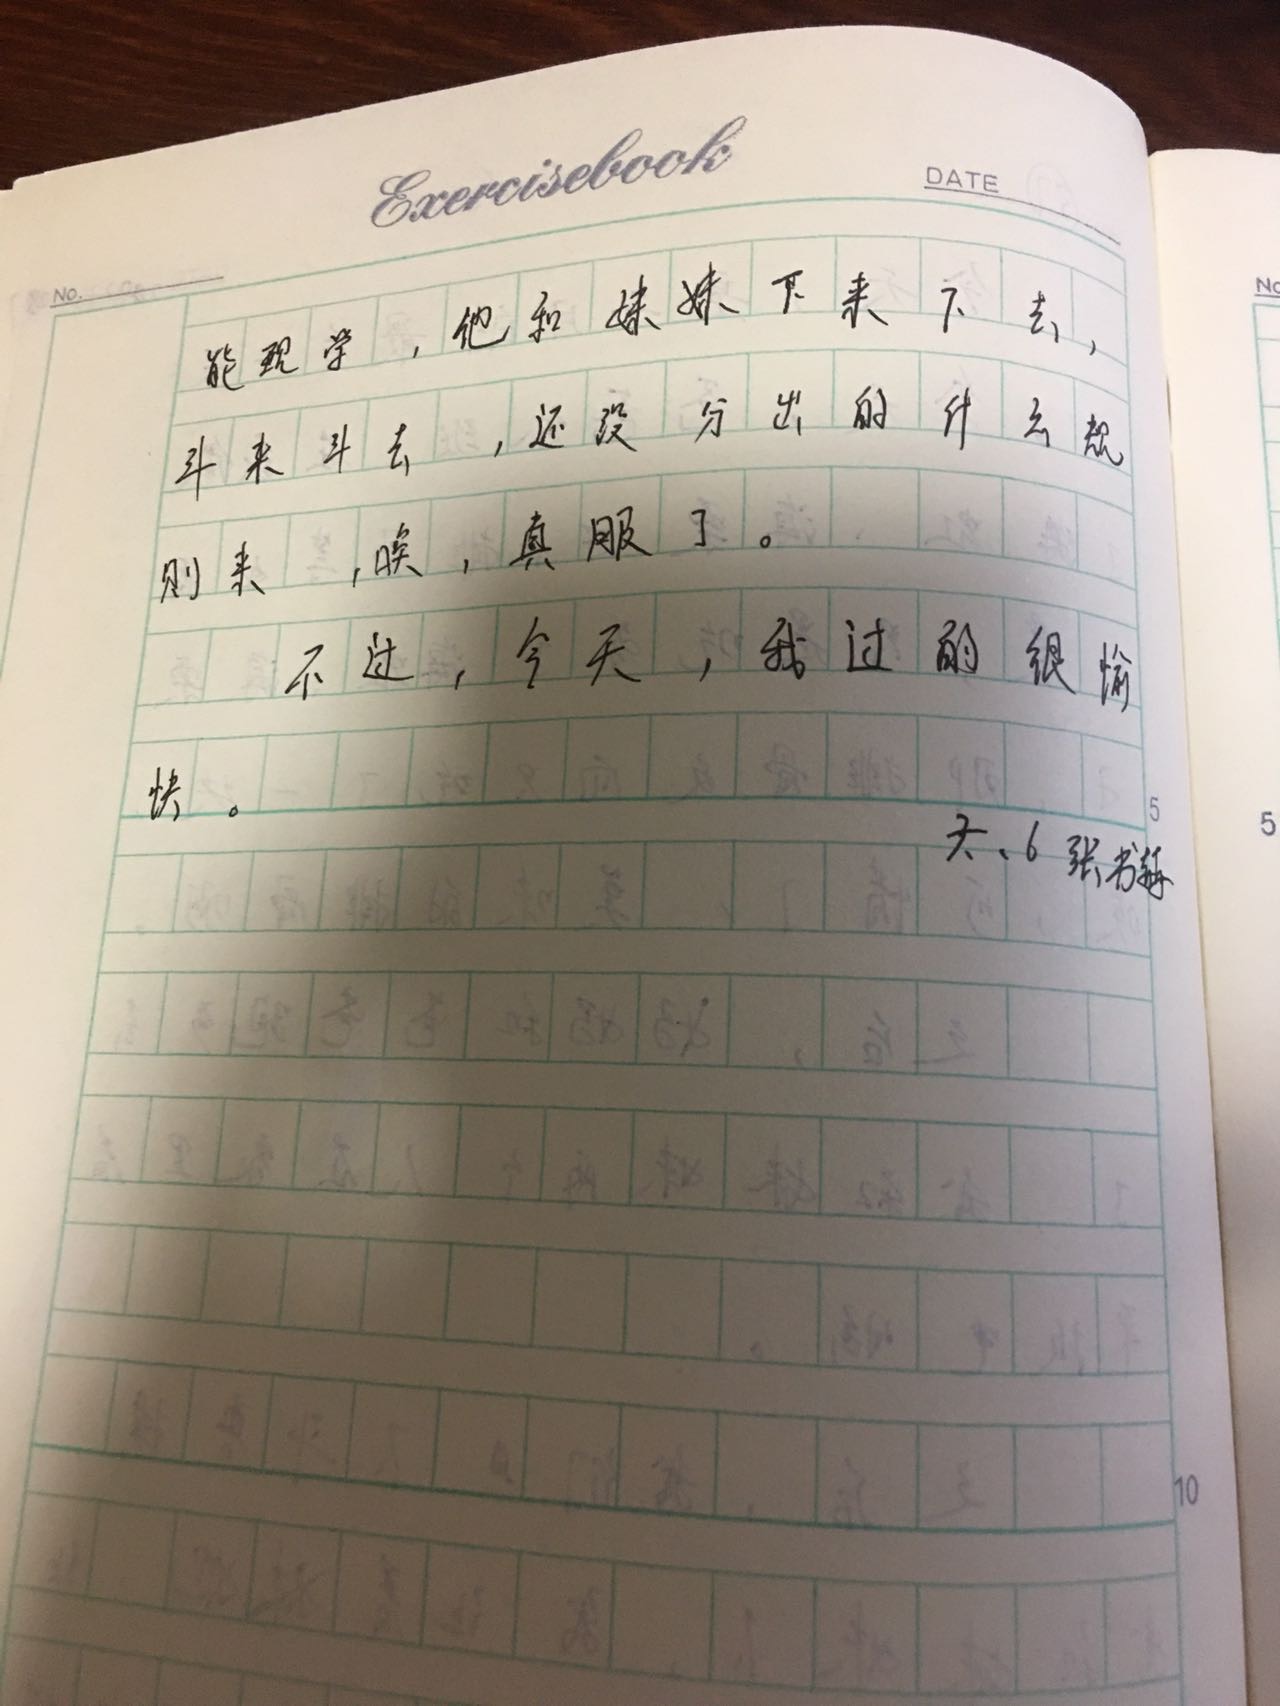 Exercisebook
DATE
NO.
能现学，他和妹妹下来下去，
斗来斗去，还没分出的什么规
则来，唉，真服了。
不过，今天，我过的很愉
快。
5
天、6 张书
10
5
NO